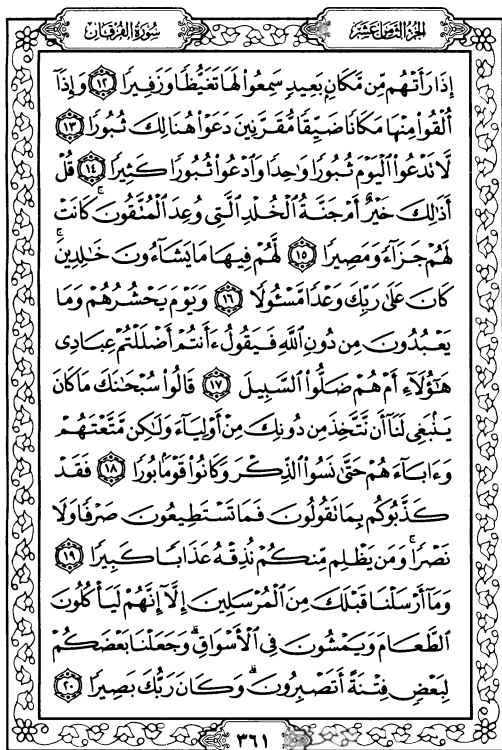 الجزء الثامن عشر
سورة الفرقان
إِذَا رَأَتْهُم مِّن مَّكَانٍ بَعِيدٍ سَمِعُوا۟ لَهَا تَغَيُّظًا وَزَفِيرًا ١٢ وَإِذَآ
أُلْقُوا۟ مِنْهَا مَكَانًا ضَيِّقًا مُّقَرَّنِينَ دَعَوْا۟ هُنَالِكَ ثُبُورًا ١٣
لَّا تَدْعُوا۟ ٱلْيَوْمَ ثُبُورًا وَٰحِدًا وَٱدْعُوا۟ ثُبُورًا كَثِيرًا ١٤ قُلْ
أَذَٰلِكَ خَيْرٌ أَمْ جَنَّةُ ٱلْخُلْدِ ٱلَّتِى وُعِدَ ٱلْمُتَّقُونَ ۚ كَانَتْ
لَهُمْ جَزَآءً وَمَصِيرًا ١٥ لَّهُمْ فِيهَا مَا يَشَآءُونَ خَٰلِدِينَ ۚ
كَانَ عَلَىٰ رَبِّكَ وَعْدًا مَّسْـُٔولًا ١٦ وَيَوْمَ يَحْشُرُهُمْ وَمَا
يَعْبُدُونَ مِن دُونِ ٱللَّهِ فَيَقُولُ ءَأَنتُمْ أَضْلَلْتُمْ عِبَادِى
هَٰٓؤُلَآءِ أَمْ هُمْ ضَلُّوا۟ ٱلسَّبِيلَ ١٧ قَالُوا۟ سُبْحَٰنَكَ مَا كَانَ
يَنۢبَغِى لَنَآ أَن نَّتَّخِذَ مِن دُونِكَ مِنْ أَوْلِيَآءَ وَلَٰكِن مَّتَّعْتَهُمْ
وَءَابَآءَهُمْ حَتَّىٰ نَسُوا۟ ٱلذِّكْرَ وَكَانُوا۟ قَوْمًۢا بُورًا ١٨ فَقَدْ
كَذَّبُوكُم بِمَا تَقُولُونَ فَمَا تَسْتَطِيعُونَ صَرْفًا وَلَا
نَصْرًا ۚ وَمَن يَظْلِم مِّنكُمْ نُذِقْهُ عَذَابًا كَبِيرًا ١٩
وَمَآ أَرْسَلْنَا قَبْلَكَ مِنَ ٱلْمُرْسَلِينَ إِلَّآ إِنَّهُمْ لَيَأْكُلُونَ
ٱلطَّعَامَ وَيَمْشُونَ فِى ٱلْأَسْوَاقِ ۗ وَجَعَلْنَا بَعْضَكُمْ
لِبَعْضٍ فِتْنَةً أَتَصْبِرُونَ ۗ وَكَانَ رَبُّكَ بَصِيرًا ٢٠
٣٦١